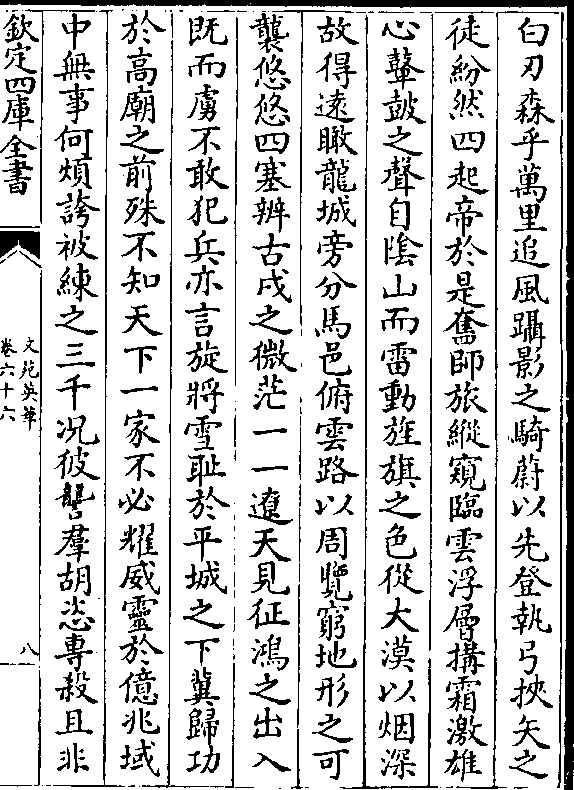 白刃森乎萬里追風躡影之騎蔚以先登執弓挾矢之
徒紛然四起帝於是奮師旅縱窺臨雲浮層搆霜激雄
心鼙鼓之聲自陰山而雷動旌旗之色從大漠以烟深
故得遠瞰龍城旁分馬邑俯雲路以周覽窮地形之可
襲悠悠四塞辨古戍之微茫一一遼天見征鴻之出入
既而虜不敢犯兵亦言旋將雪耻於平城之下冀歸功
於高廟之前殊不知天下一家不必耀威靈於億兆域
中無事何煩誇被練之三千况彼讋羣胡恣專殺且非
欽定四庫全書
文苑英華
卷六十六
八